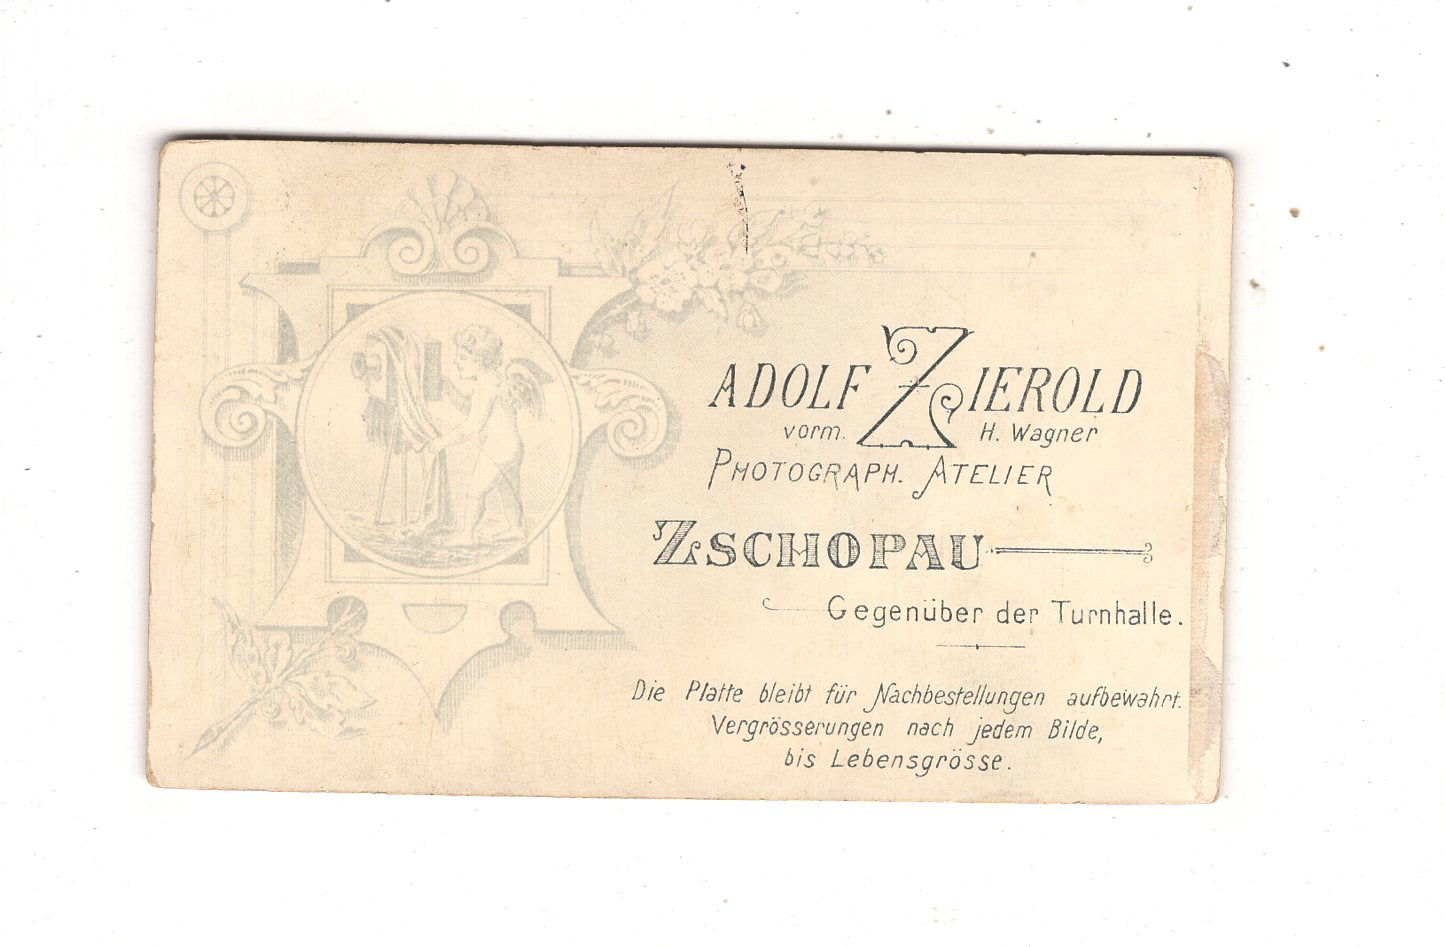 ADOLF ZIEROLD
vorm. H. Wagner
PHOTOGRAPH. ATELIER
ZSCHOPAU
Gegenüber der Turnhalle.
Die Platte bleibt für Nachbestellungen aufbewahrt.
Vergrösserungen nach jedem Bilde,
bis Lebensgrösse.